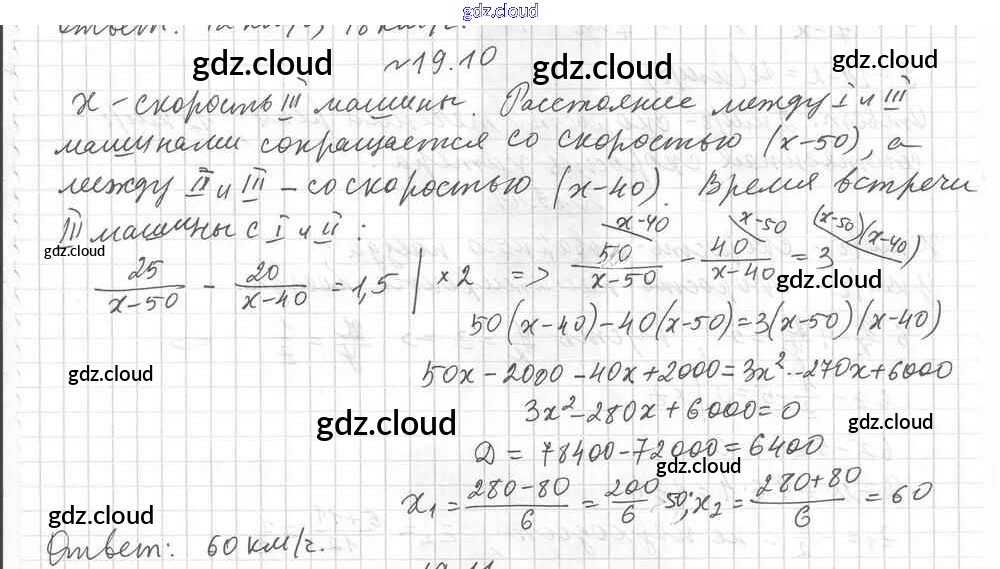 gdz.cloud
Ответ: 12 км/ч, 18 км/ч.
№19.10
x - скорость III машины. Расстояние между I и III
машинами сокращается со скоростью (x-50), а
между II и III - со скоростью (x-40). Время встречи
III машины с I и II:
x-40 x-50 (x-50)(x-40)
25/(x-50) - 20/(x-40) = 1,5 | ×2 => 50/(x-50) - 40/(x-40) = 3
50(x-40)-40(x-50)=3(x-50)(x-40)
50x-2000-40x+2000=3x²-270x+6000
3x²-280x+6000=0
D = 78400-72000=6400
x₁ = (280-80)/6 = 200/6 50; x₂ = (280+80)/6 = 60
Ответ: 60 км/ч.
gdz.cloud
gdz.cloud
gdz.cloud
gdz.cloud
gdz.cloud
gdz.cloud
gdz.cloud
gdz.cloud
gdz.cloud